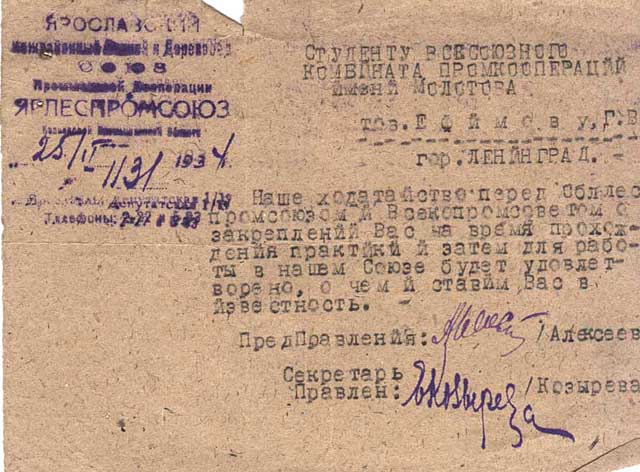 ЯРОСЛАВСКИЙ
Межрайонный Лесной и Деревообр
СОЮЗ
Промысловой Кооперации
ЯРЛЕСПРОМСОЮЗ
Промышленной Области
„25/II 1934
№ 1131
Телефоны:
СТУДЕНТУ ВСЕСОЮЗНОГО
КОМБИНАТА ПРОМКООПЕРАЦИЙ
имени МОЛОТОВА
тов. Е ф и м о в у, Г. В
гор. ЛЕНИНГРАД. –
Наше ходатайство перед Обллес
промсоюзом и Всекопромсоветом о
закреплений Вас на время прохож-
дения практики и затем для рабо-
ты в нашем Союзе будет удовлет-
ворено, о чем и ставим Вас в
известность. –
ПредПравления: /Алексеев
Секретарь
Правлен: Екозырева /Козырева